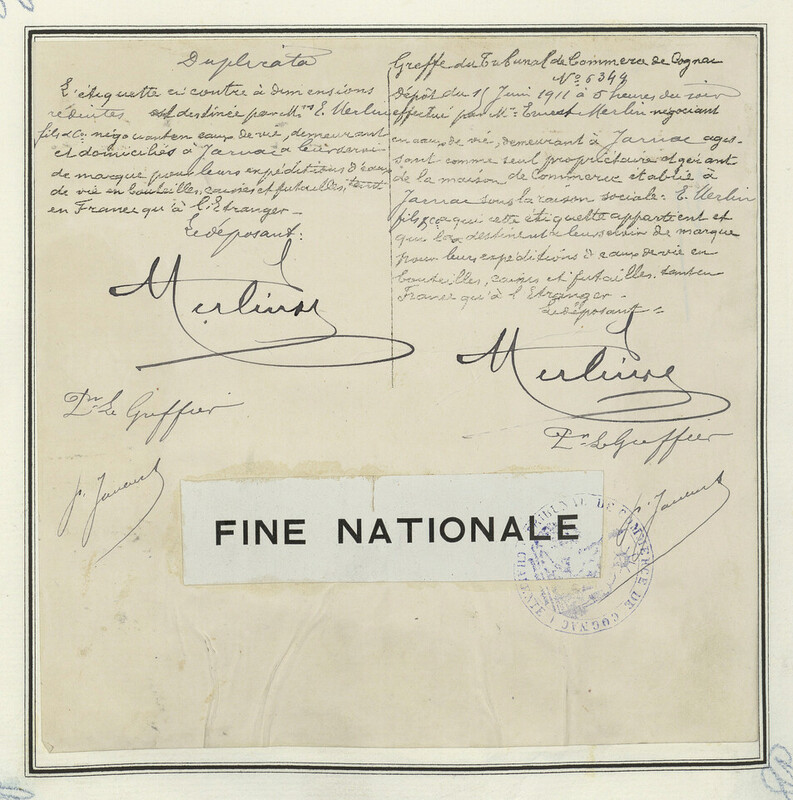 Duplicata
L'étiquette ci contre à dimensions
réduites est destinée par Mrs E. Merlin
fils & Co négociants en eaux de vie, demeurant
et domiciliés à Jarnac à leur servir
de marque pour leurs expéditions d'eaux
de vie en bouteilles, caisses et futailles, tant
en France qu'à l'Etranger -
Le déposant:
Merlin
Pr Le Greffier
Greffe du Tribunal de Commerce de Cognac
No 6349
dépôt du 15 Juin 1911 à 5 heures du soir
effectué par Mr Ernest Merlin négociant
en eaux de vie, demeurant à Jarnac agis-
sant comme seul propriétaire et gérant
de la maison de Commerce établie à
Jarnac sous la raison sociale: E. Merlin
fils & Co à qui cette étiquette appartient et
qui la destinent à leur servir de marque
pour leurs expéditions d'eaux de vie en
bouteilles, caisses et futailles. tant en
France qu'à l'Etranger -
Le déposant =
Merlin
Pr Le Greffier
FINE NATIONALE
TRIBUNAL DE COMMERCE DE COGNAC (CHARENTE)